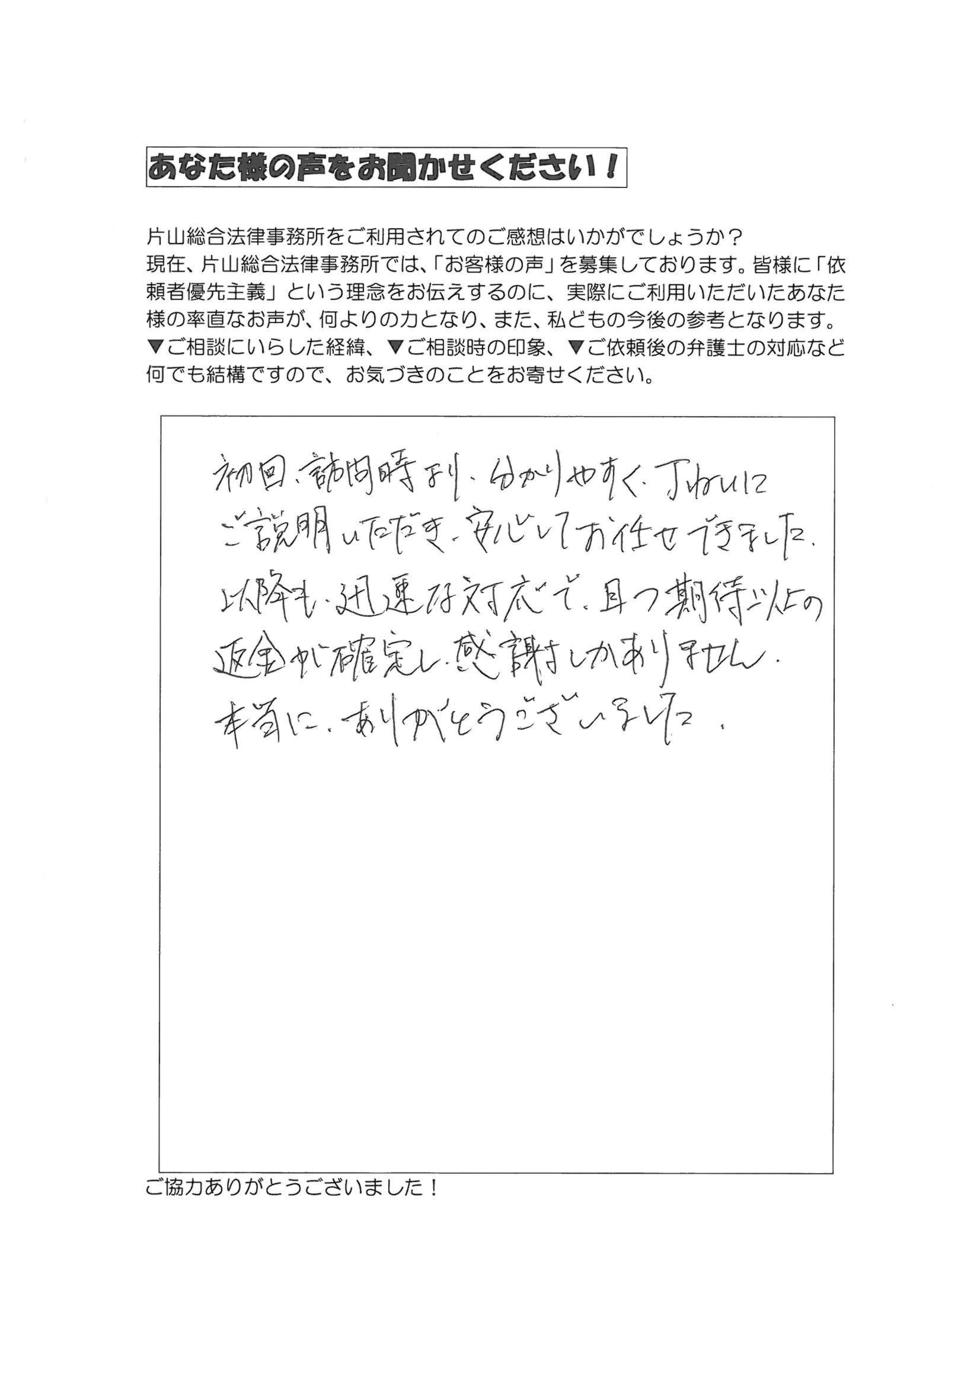 あなた様の声をお聞かせください！
片山総合法律事務所をご利用されてのご感想はいかがでしょうか？
現在、片山総合法律事務所では、「お客様の声」を募集しております。皆様に「依
頼者優先主義」という理念をお伝えするのに、実際にご利用いただいたあなた
様の率直なお声が、何よりの力となり、また、私どもの今後の参考となります。
▼ご相談にいらした経緯、▼ご相談時の印象、▼ご依頼後の弁護士の対応など
何でも結構ですので、お気づきのことをお寄せください。
初回、訪問時より、分かりやすく、丁ねいに
ご説明いただき、安心してお任せできました.
以降も、迅速な対応で、且つ期待以上の
返金が確定し、感謝しかありません.
本当に、ありがとうございました.
ご協力ありがとうございました！